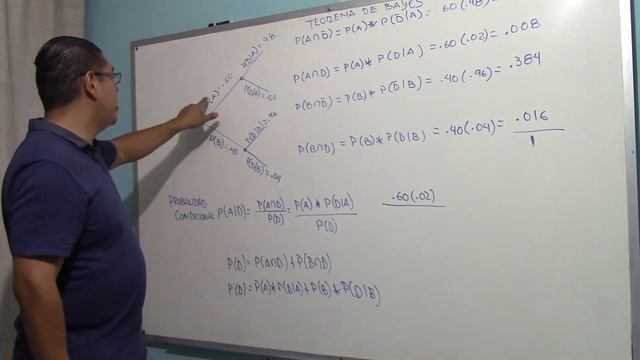 TEOREMA DE BAYES
P(A∩D̄) = P(A)* P(D̄|A) = .60(.98) =
P(A∩D) = P(A)* P(D|A) = .60(.02) = .008
P(B∩D̄) = P(B)* P(D̄|B) = .40(.96) = .384
P(B∩D) = P(B)* P(D|B) = .40(.04) = .016
1
P(A) = .60
P(D̄|A) = .98
P(D|A) = .02
P(B) = .40
P(D̄|B) = .96
P(D|B) = .04
PROBALIDAD
CONDICIONAL P(A|D) = P(A∩D) / P(D) = P(A) * P(D|A) / P(D)
.60(.02)
P(D) = P(A∩D) + P(B∩D)
P(D) = P(A)* P(D|A) + P(B) * P(D|B)